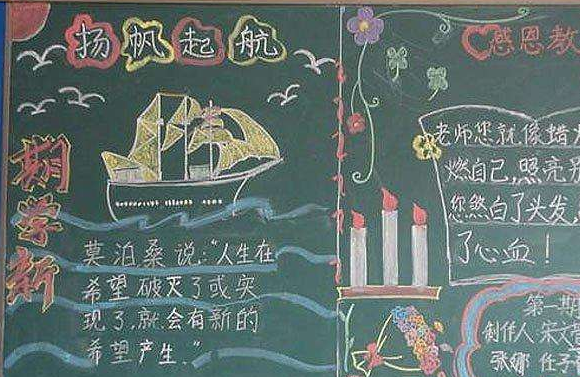 扬帆起航
期学新
莫泊桑说:“人生在
希望破灭了或实
现了,就会有新的
希望产生.”
感恩教
老师您就像蜡
燃自己,照亮别
您熬白了头发,
了心血!
第一期
制作人宋文
张娜 任子